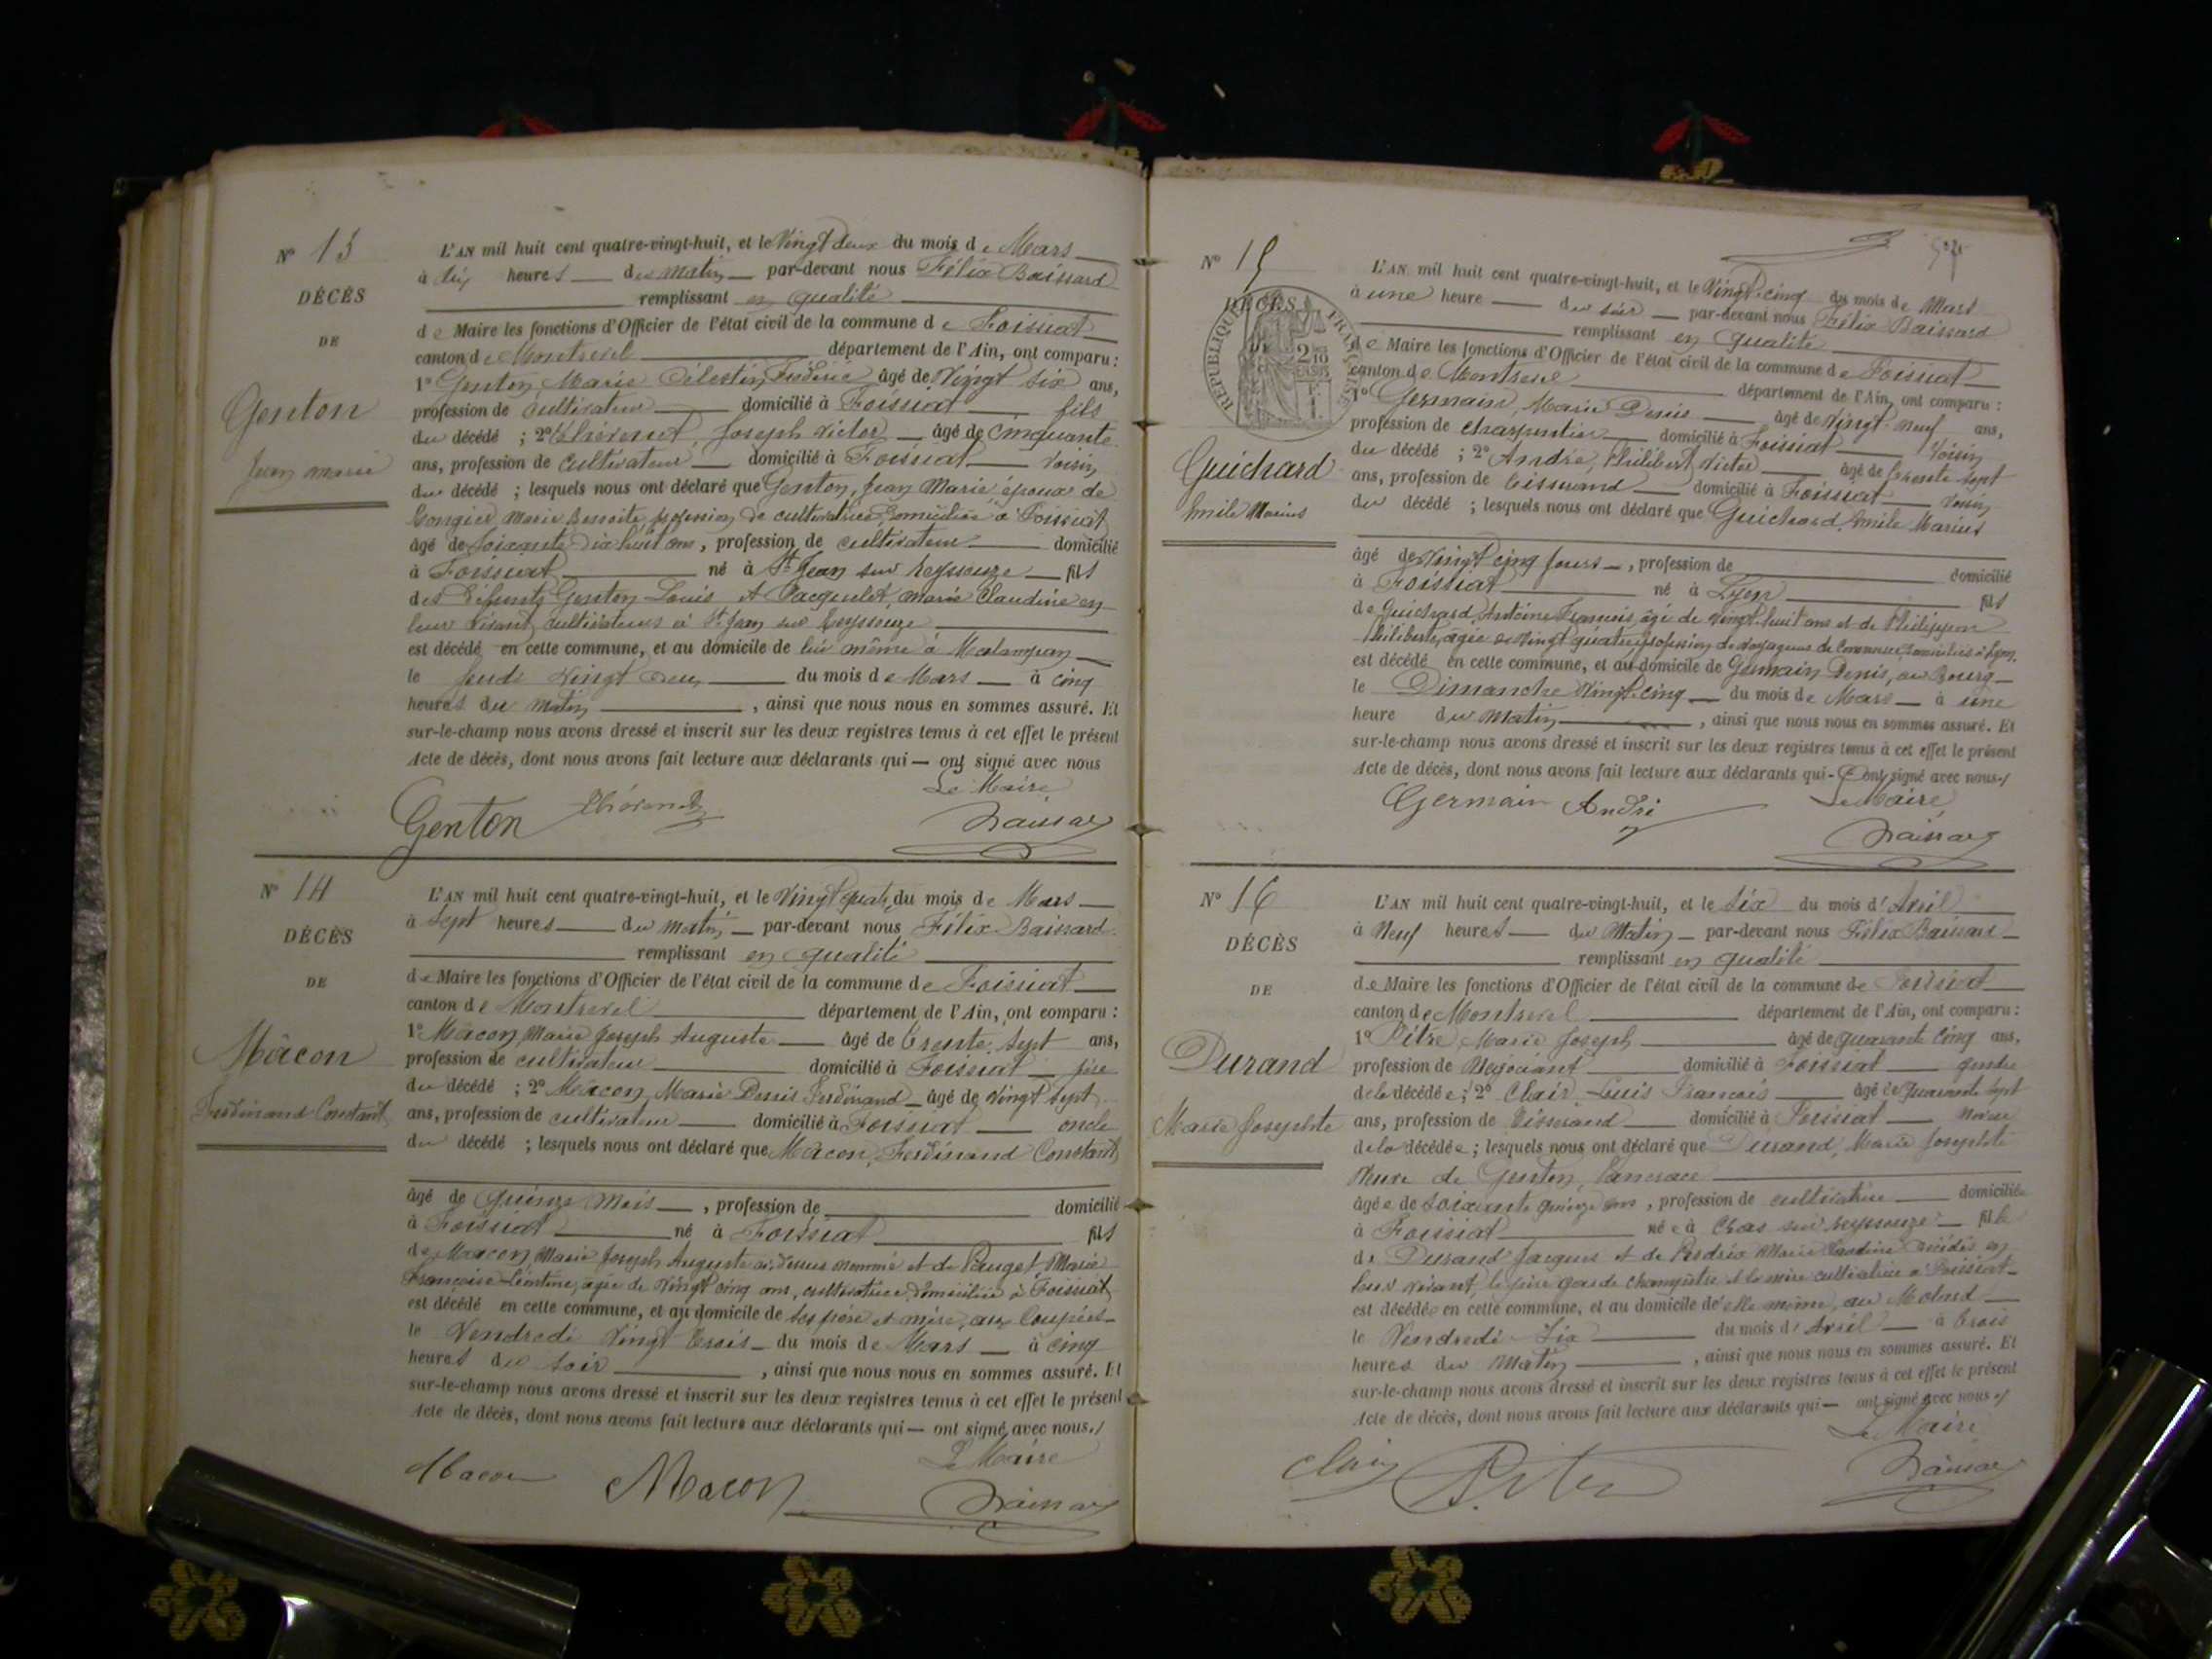 N° 13
DÉCÈS
DE
Genton
Jean Marie
L'AN mil huit cent quatre-vingt-huit, et le Vingt deux du mois de Mars
à dix heures du matin par-devant nous Félix Baissard
remplissant en qualité
de Maire les fonctions d'Officier de l'état civil de la commune de Foissiat
canton de Montrevel département de l'Ain, ont comparu :
1° Genton, Marie Célestin Frédéric âgé de Vingt six ans,
profession de cultivateur domicilié à Foissiat fils
du décédé ; 2° Thévenet, Joseph Victor âgé de cinquante
ans, profession de cultivateur domicilié à Foissiat voisin
du décédé ; lesquels nous ont déclaré que Genton, Jean Marie époux de
Marie Benoite, profession de cultivatrice, domiciliée à Foissiat
âgé de soixante dix huit ans, profession de cultivateur domicilié
à Foissiat né à St Jean sur Reyssouze fils
des défunts Genton Louis et Pacquelet, Marie Claudine en
leur vivant cultivateurs à St Jean sur Reyssouze
est décédé en cette commune, et au domicile de lui même à
le Jeudi Vingt deux du mois de Mars à cinq
heures du matin, ainsi que nous nous en sommes assuré. Et
sur-le-champ nous avons dressé et inscrit sur les deux registres tenus à cet effet le présent
Acte de décès, dont nous avons fait lecture aux déclarants qui — ont signé avec nous
Le Maire
Genton Thévenet Baissard
N° 14
DÉCÈS
DE
Mâcon
Ferdinand Constant
L'AN mil huit cent quatre-vingt-huit, et le Vingt quatre du mois de Mars
à Sept heures du matin par-devant nous Félix Baissard
remplissant en qualité
de Maire les fonctions d'Officier de l'état civil de la commune de Foissiat
canton de Montrevel département de l'Ain, ont comparu :
1° Mâcon, Marie Joseph Auguste âgé de trente sept ans,
profession de cultivateur domicilié à Foissiat père
du décédé ; 2° Mâcon, Marie Denis Ferdinand âgé de Vingt sept
ans, profession de cultivateur domicilié à Foissiat oncle
du décédé ; lesquels nous ont déclaré que Mâcon, Ferdinand Constant
âgé de Quinze Mois, profession de domicilié
à Foissiat né à Foissiat fils
de Mâcon, Marie Joseph Auguste ci-dessus nommé et de Pauget, Marie
Françoise Léontine, âgée de Vingt cinq ans, cultivatrice, domiciliée à Foissiat
est décédé en cette commune, et au domicile de ses père et mère, aux
le Vendredi Vingt trois du mois de Mars à cinq
heures du soir, ainsi que nous nous en sommes assuré. Et
sur-le-champ nous avons dressé et inscrit sur les deux registres tenus à cet effet le présent
Acte de décès, dont nous avons fait lecture aux déclarants qui — ont signé avec nous./
Le Maire
Macon Macon Baissard
N° 15
DÉCÈS
DE
RÉPUBLIQUE FRANÇAISE
Guichard
Emile Marius
L'AN mil huit cent quatre-vingt-huit, et le Vingt-cinq du mois de Mars
à une heure du soir par-devant nous Félix Baissard
remplissant en qualité
de Maire les fonctions d'Officier de l'état civil de la commune de Foissiat
canton de Montrevel département de l'Ain, ont comparu :
1° Germain, Marie Denis âgé de Vingt-neuf ans,
profession de charpentier domicilié à Foissiat voisin
du décédé ; 2° André, Philibert Victor âgé de trente sept
ans, profession de tisserand domicilié à Foissiat voisin
du décédé ; lesquels nous ont déclaré que Guichard, Emile Marius
âgé de Vingt cinq jours, profession de domicilié
à Foissiat né à Lyon fils
de Guichard, Antoine François, âgé de Vingt-huit ans et de Philippon
Philiberte, âgée de Vingt quatre, profession de voyageurs de Commerce, domiciliés à Lyon.
est décédé en cette commune, et au domicile de Germain Denis, au Bourg
le Dimanche Vingt-cinq du mois de Mars à une
heure du matin, ainsi que nous nous en sommes assuré. Et
sur-le-champ nous avons dressé et inscrit sur les deux registres tenus à cet effet le présent
Acte de décès, dont nous avons fait lecture aux déclarants qui - ont signé avec nous./
Germain André Le Maire
Baissard
N° 16
DÉCÈS
DE
Durand
Marie Josephte
L'AN mil huit cent quatre-vingt-huit, et le six du mois d'Avril
à Neuf heures du Matin par-devant nous Félix Baissard
remplissant en qualité
de Maire les fonctions d'Officier de l'état civil de la commune de Foissiat
canton de Montrevel département de l'Ain, ont comparu :
1° Pitre, Marie Joseph âgé de quarante cinq ans,
profession de Négociant domicilié à Foissiat gendre
de la décédée ; 2° Clair, Louis François âgé de quarante sept
ans, profession de Tisserand domicilié à Foissiat neveu
de la décédée ; lesquels nous ont déclaré que Durand, Marie Josephte
Veuve de Genton, Pancrace
âgée de soixante quinze ans, profession de cultivatrice domiciliée
à Foissiat née à Cras sur Reyssouze fille
de Durand Jacques et de Perdrix Marie Claudine décédés en
leur vivant, le père garde champêtre et la mère cultivatrice à Foissiat
est décédée en cette commune, et au domicile de elle même, au Molard
le Vendredi six du mois d'Avril à trois
heures du Matin, ainsi que nous nous en sommes assuré. Et
sur-le-champ nous avons dressé et inscrit sur les deux registres tenus à cet effet le présent
Acte de décès, dont nous avons fait lecture aux déclarants qui — ont signé avec nous./
Le Maire
Clair Pitre Baissard